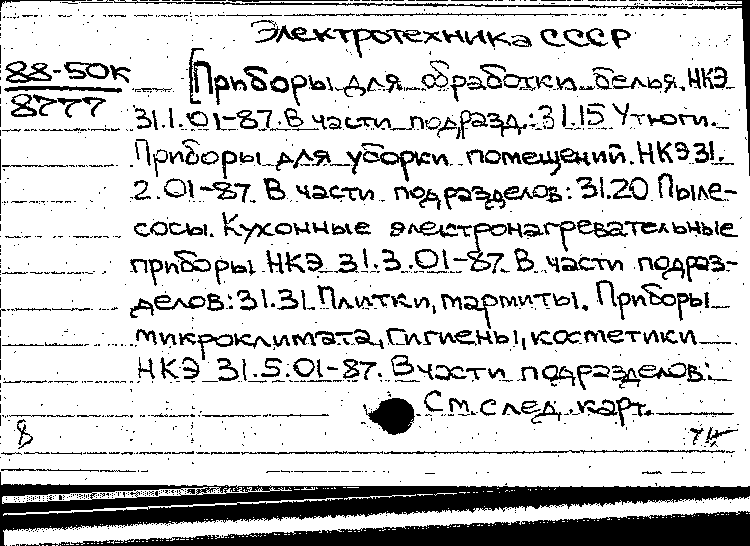 Электротехника СССР
88-50К
8777
[Приборы для обработки белья. НКЭ
31.1.01-87. В части подразд.: 31.15 Утюги.
Приборы для уборки помещений. НКЭ 31.
2.01-87. В части подразделов: 31.20 Пыле-
сосы. Кухонные электронагревательные
приборы НКЭ 31.3.01-87. В части подраз-
делов: 31.31 Плитки, мармиты. Приборы
микроклимата, гигиены, косметики
НКЭ 31.5.01-87. В части подразделов:
См. след. карт.
8